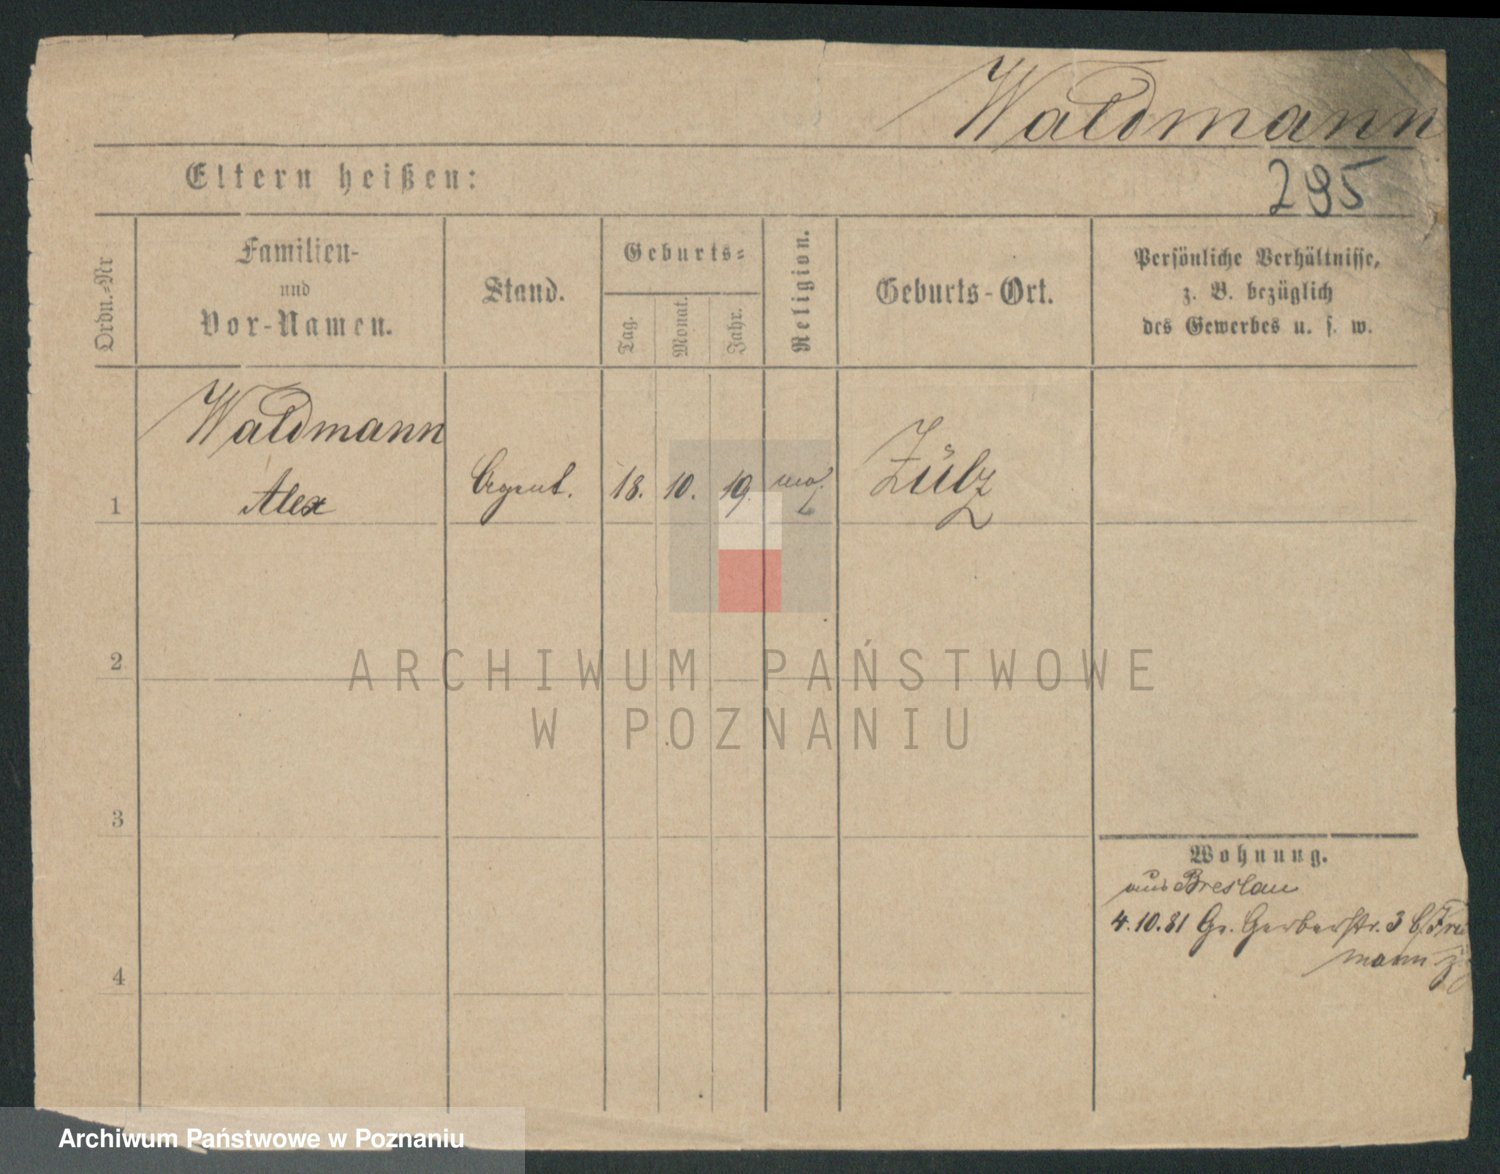 Waldmann
295
Eltern heißen:
Ordn.-Nr
Familien-
und
Vor-Namen.
Stand.
Geburts-
Tag.
Monat.
Jahr.
Religion.
Geburts-Ort.
Persönliche Verhältnisse,
z. B. bezüglich
des Gewerbes u. s. w.
Waldmann
1 Alex Agent. 18. 10. 19. mos. Zülz
2
ARCHIWUM PAŃSTWOWE
W POZNANIU
3
Wohnung.
aus Breslau
4.10.81 Gr. Gerberstr. 3 b/
mann
4
Archiwum Państwowe w Poznaniu